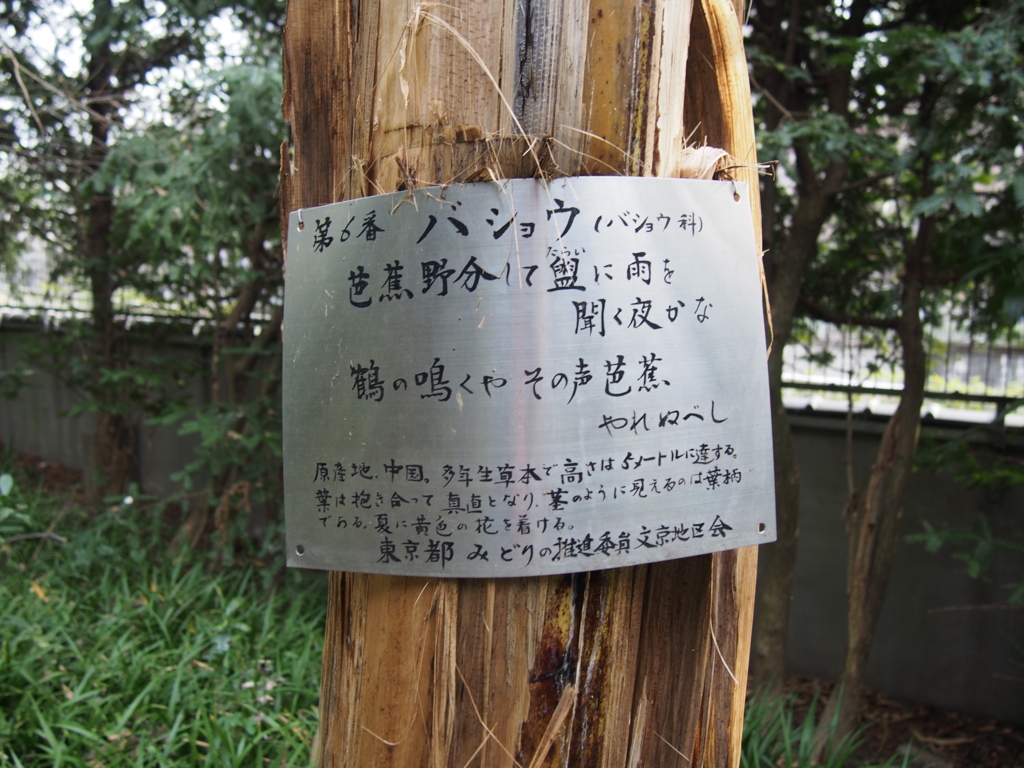 第6番 バショウ(バショウ科)
芭蕉野分して盥に雨を
たらい
聞く夜かな
鶴の鳴くや その声芭蕉
やれぬべし
原産地、中国。多年生草本で高さは5メートルに達する。
葉は抱き合って真直となり、茎のように見えるのは葉柄
である。夏に黄色の花を着ける。
東京都 みどりの推進委員文京地区会